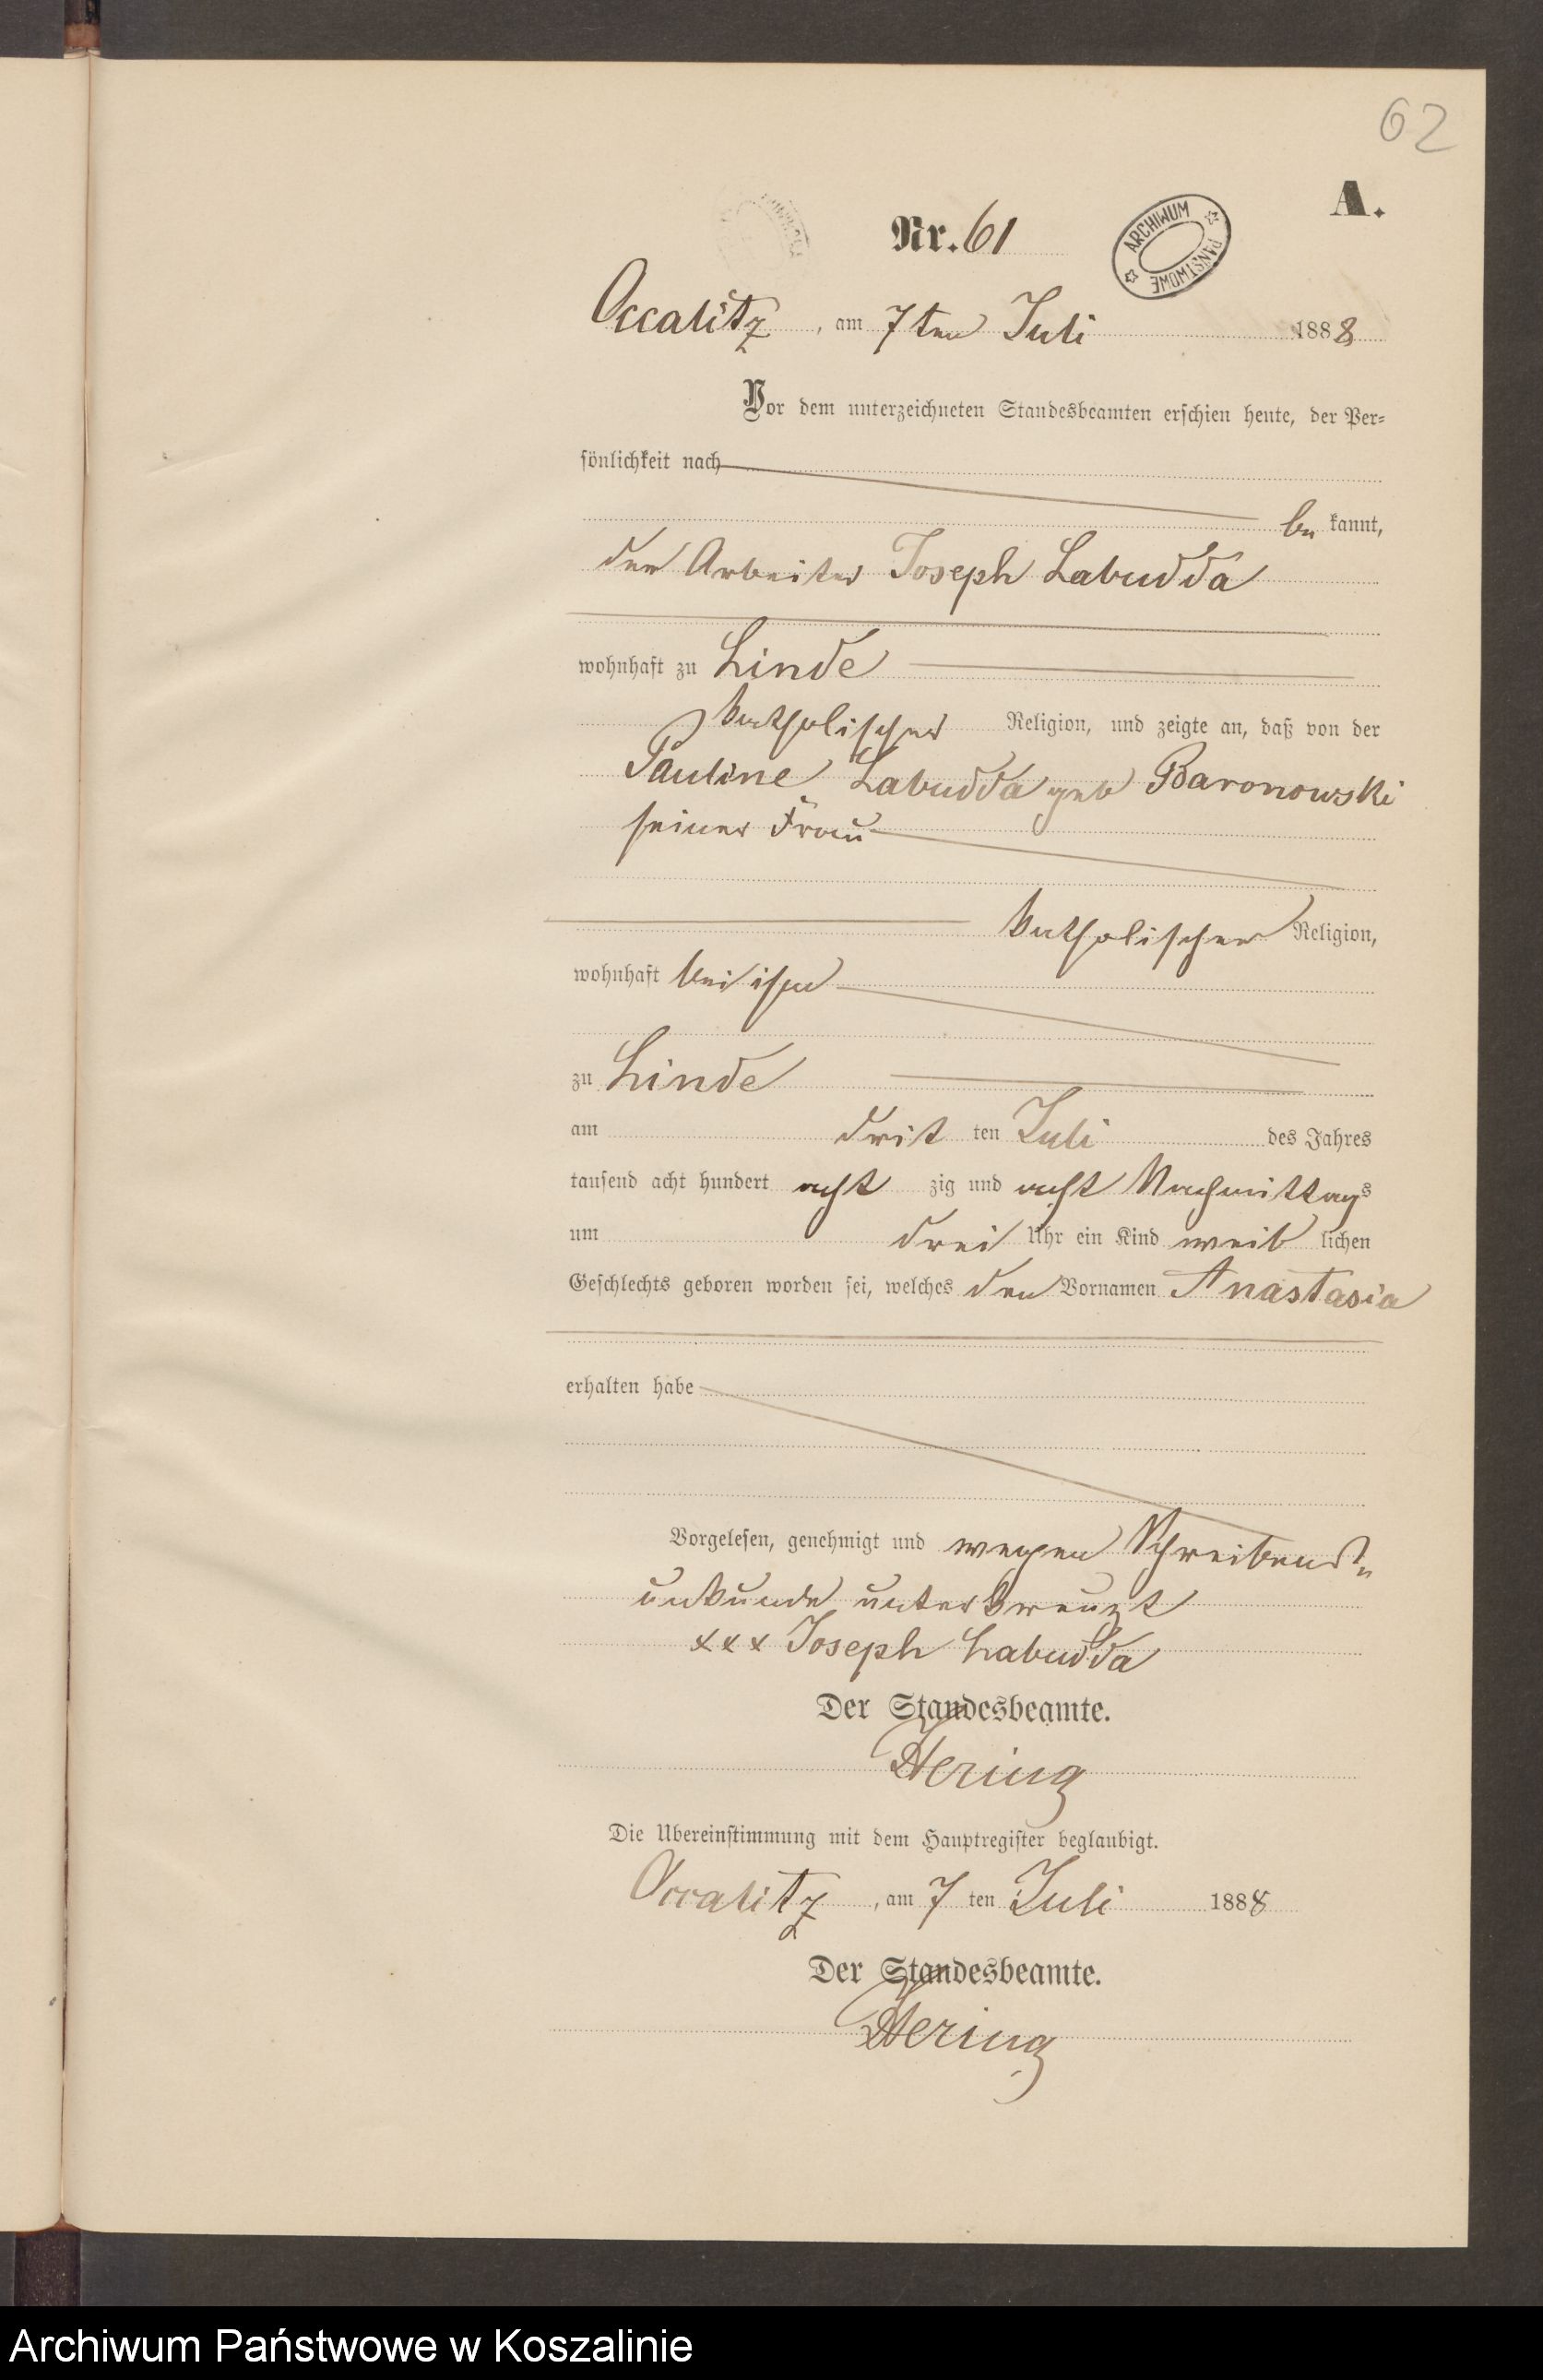 62
A.
Nr. 61
ARCHIWUM PAŃSTWOWE
Occalitz, am 7ten Juli 1888
Vor dem unterzeichneten Standesbeamten erschien heute, der Per-
sönlichkeit nach
be kannt,
der Arbeiter Joseph Labudda
wohnhaft zu Linde
katholischer Religion, und zeigte an, daß von der
Pauline Labudda geb Baronowski
seiner Frau
katholischer Religion,
wohnhaft bei ihm
zu Linde
am drit ten Juli des Jahres
tausend acht hundert acht zig und acht Nachmittags
um drei Uhr ein Kind weib lichen
Geschlechts geboren worden sei, welches den Vornamen Anastasia
erhalten habe
Vorgelesen, genehmigt und wegen Schreibens-
unkunde unterkreuzt
xxx Joseph Labudda
Der Standesbeamte.
Hering
Die Übereinstimmung mit dem Hauptregister beglaubigt.
Occalitz, am 7 ten Juli 1888
Der Standesbeamte.
Hering
Archiwum Państwowe w Koszalinie